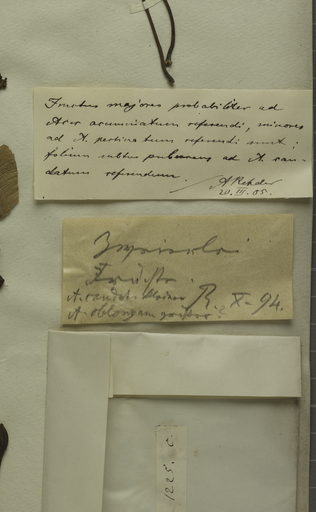 Fructus majores probabiliter ad
Acer acuminatum referendi, minores
ad A. pectinatum referendi sunt;
folium subtus pubescens ad A. cau-
datum referendum.
A Rehder
20. III. 05.
Zweierlei
Früchte.
A. caudat. kleiner R. X-94.
A. oblongum größer?
1225. C.